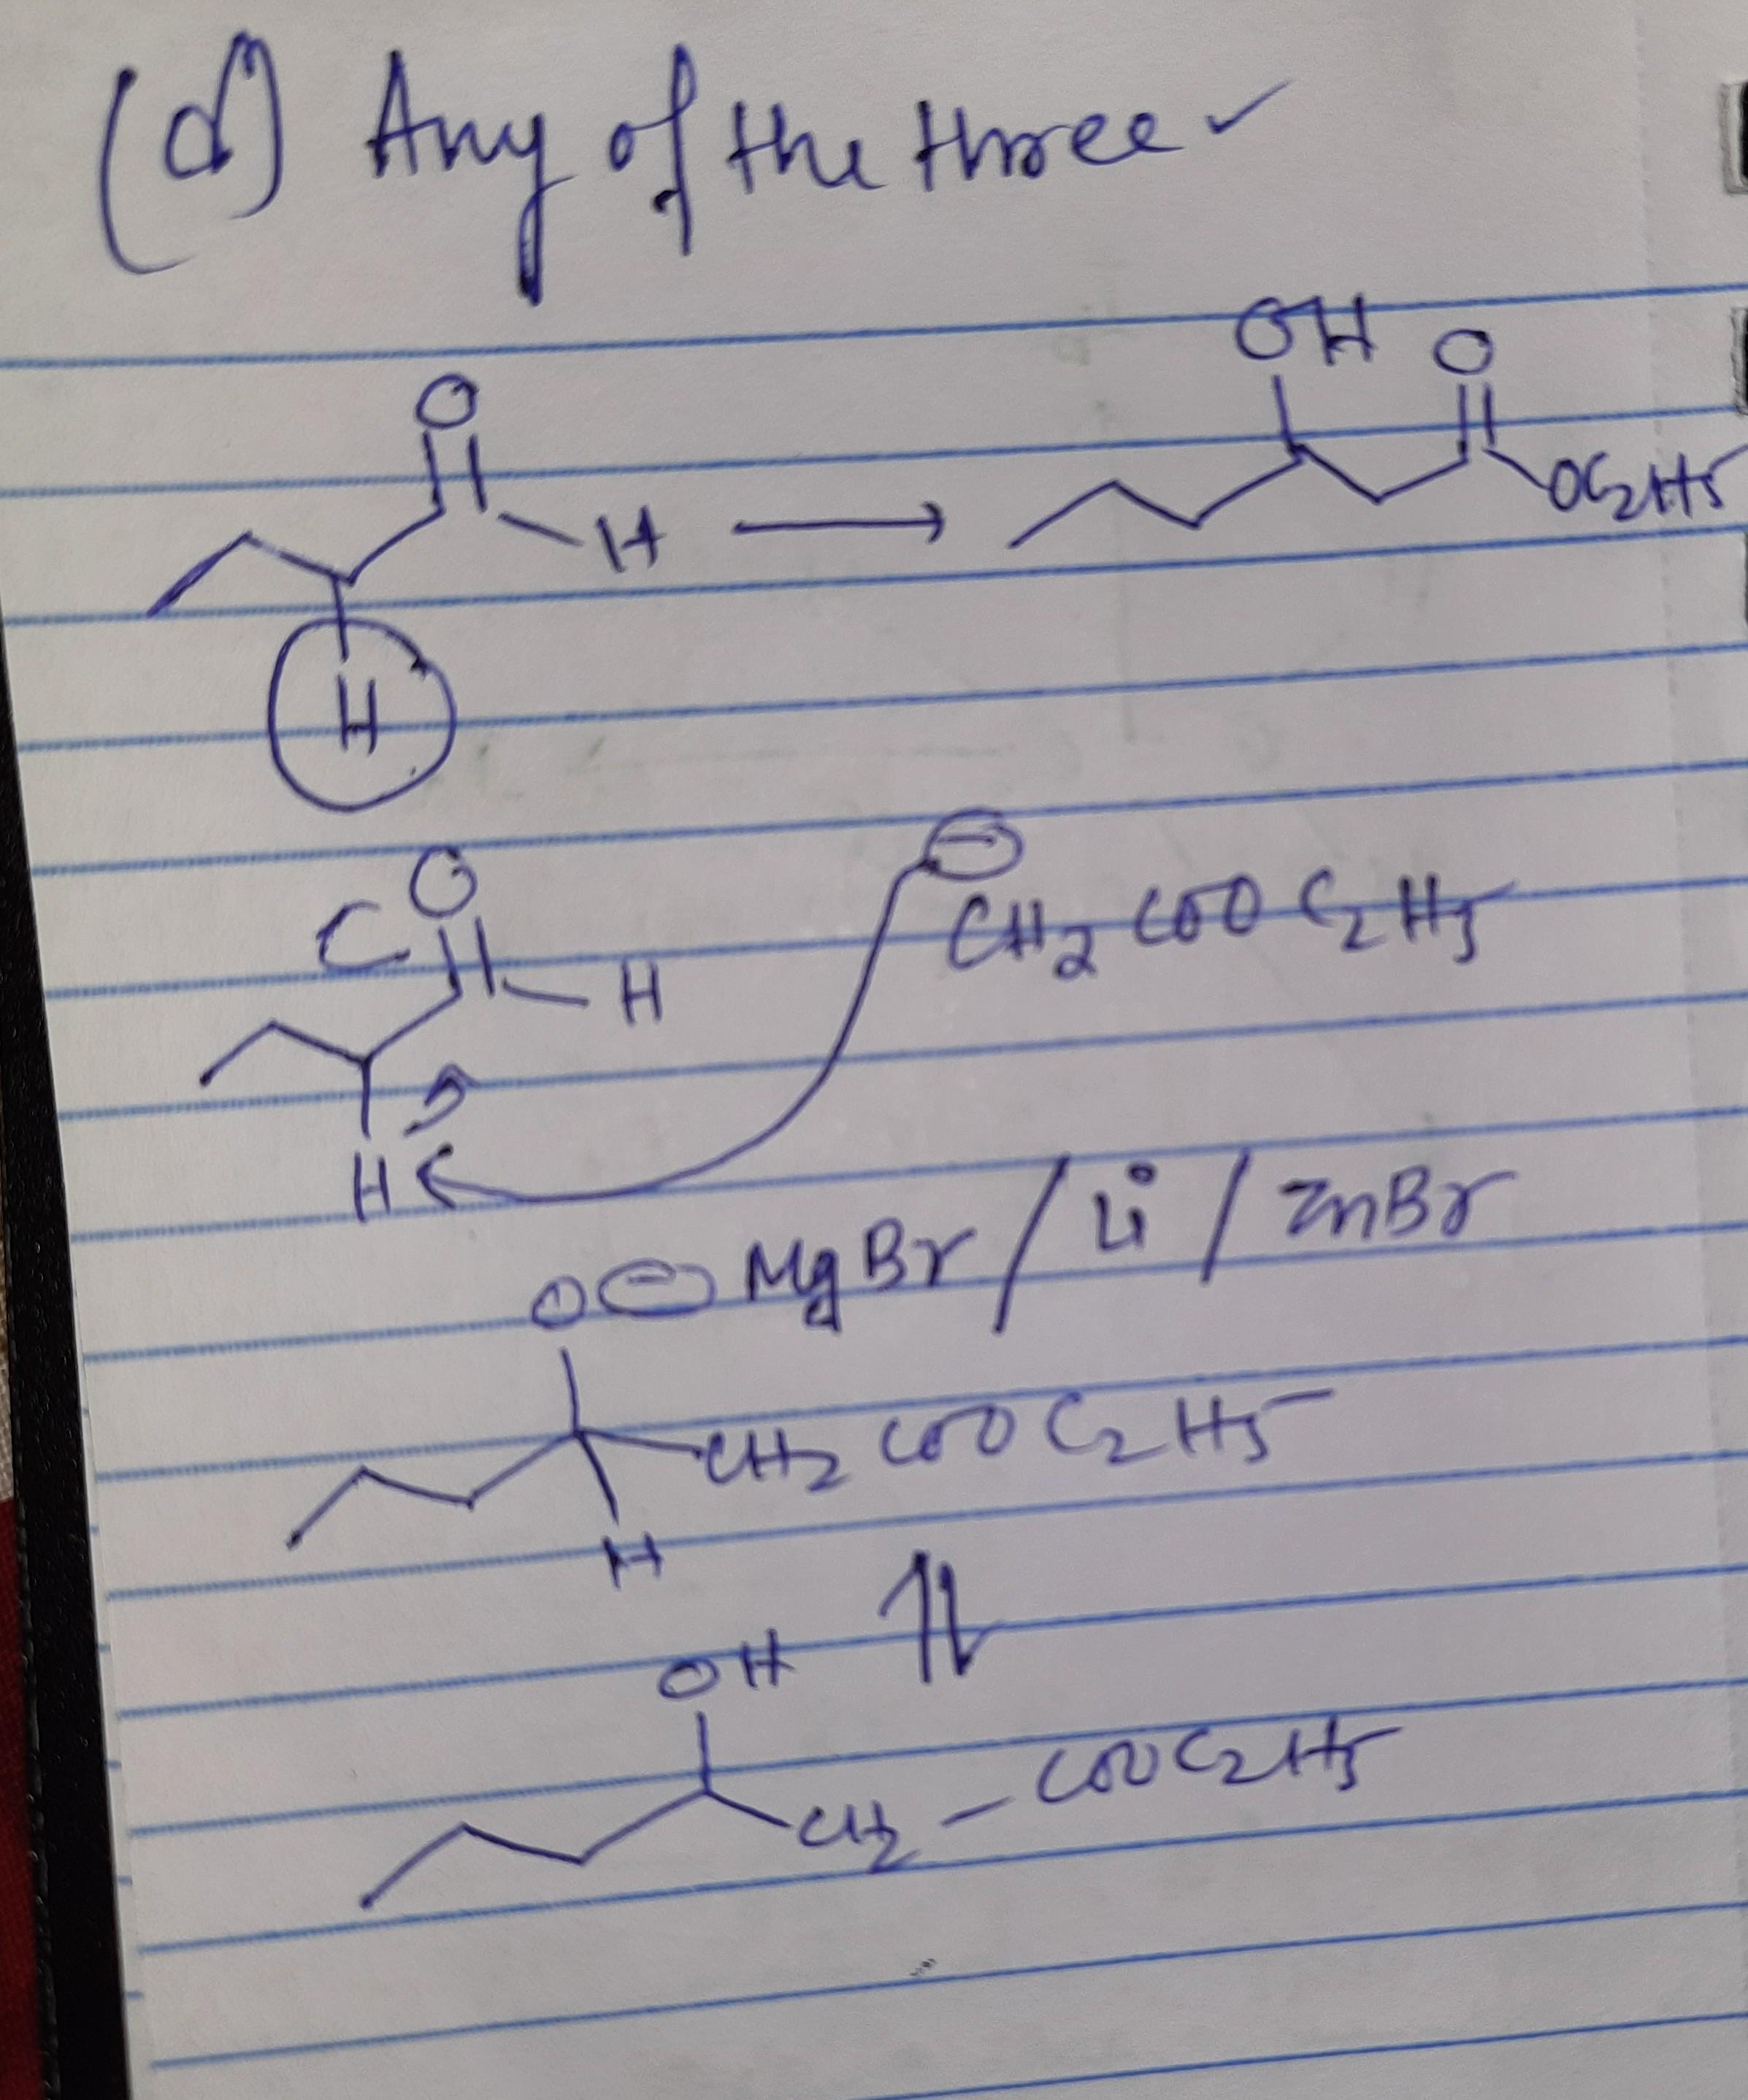 (d) Any of the three ✓
OH O
O
OC2H5
H
H
⊖
O
CH2COOC2H5
H
H
O⊖ MgBr / Li / ZnBr
CH2COOC2H5
H
OH
CH2 - COOC2H5